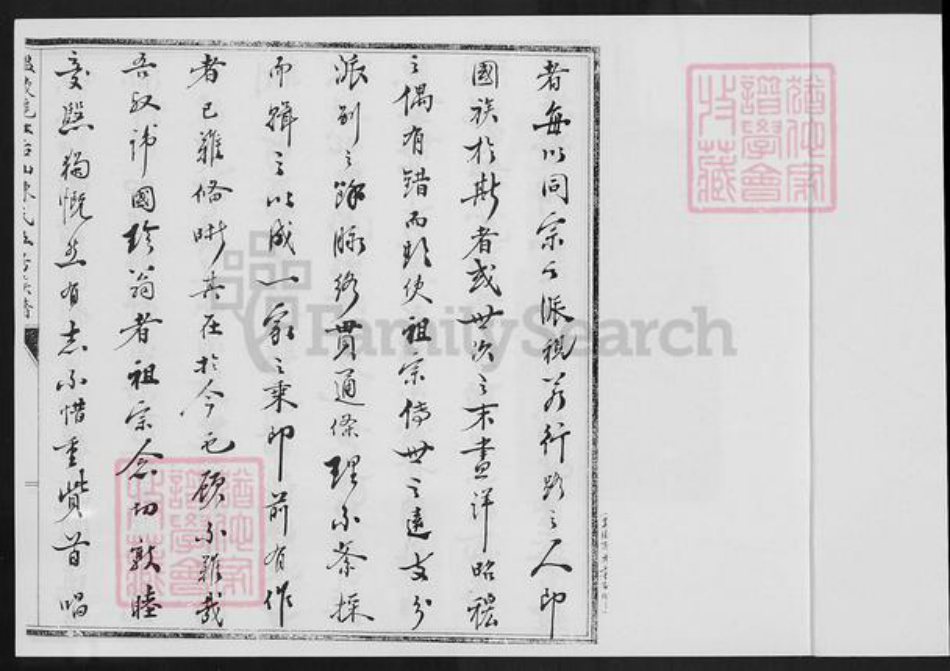 者每以同宗之派視若行路之人即
國族於斯者或世次之未盡詳昭穆
之偶有錯而欲使祖宗傳世之遠支分
派別之餘脉絡貫通條理不紊採
而輯之以成一家之乘即前有作
者已難條晰其在於今也顧不難哉
吾叔諱國珍翁者祖宗念切敦睦
獨慨然有志不惜重貲首唱
猶他家譜學會收藏
猶他家譜學會收藏
FamilySearch